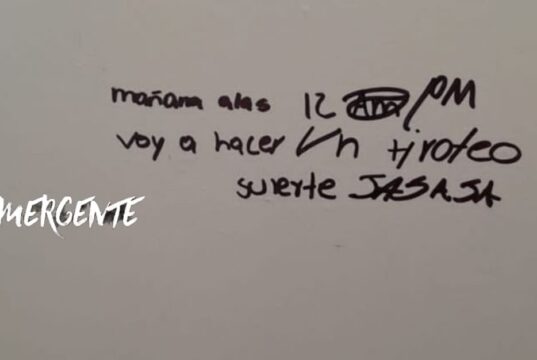 mañana alas 12 Am PM
voy a hacer Un tiroteo
suerte JASAJA
MERGENTE